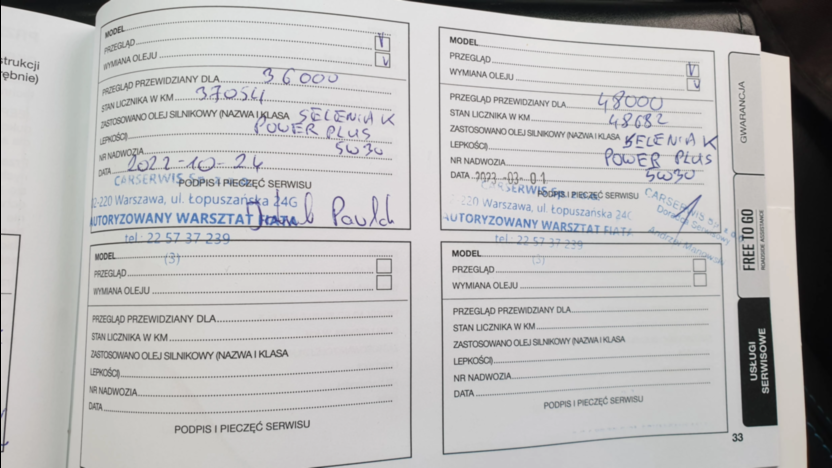 strukcji
rębnie)
MODEL
PRZEGLĄD V
WYMIANA OLEJU V
PRZEGLĄD PRZEWIDZIANY DLA 36000
STAN LICZNIKA W KM 37054
ZASTOSOWANO OLEJ SILNIKOWY (NAZWA I KLASA SELENIA K
LEPKOŚCI) POWER PLUS
NR NADWOZIA 5W30
DATA 2022-10-24
PODPIS I PIECZĘĆ SERWISU
CARSERWIS Sp.
2-220 Warszawa, ul. Łopuszańska 24G
AUTORYZOWANY WARSZTAT FIATA
tel.: 22 57 37 239
(3)
MODEL
PRZEGLĄD V
WYMIANA OLEJU V
PRZEGLĄD PRZEWIDZIANY DLA 48000
STAN LICZNIKA W KM 48682
ZASTOSOWANO OLEJ SILNIKOWY (NAZWA I KLASA SELENIA K
LEPKOŚCI) POWER PLUS
NR NADWOZIA 5W30
DATA 2023-03-01
PODPIS I PIECZĘĆ SERWISU
CARSERWIS Sp.
2-220 Warszawa, ul. Łopuszańska 24G
AUTORYZOWANY WARSZTAT FIATA
tel.: 22 57 37 239
(3)
CARSERWIS Sp.
Serwisowy
Andrzej
MODEL
PRZEGLĄD
WYMIANA OLEJU
PRZEGLĄD PRZEWIDZIANY DLA
STAN LICZNIKA W KM
ZASTOSOWANO OLEJ SILNIKOWY (NAZWA I KLASA
LEPKOŚCI)
NR NADWOZIA
DATA
PODPIS I PIECZĘĆ SERWISU
MODEL
PRZEGLĄD
WYMIANA OLEJU
PRZEGLĄD PRZEWIDZIANY DLA
STAN LICZNIKA W KM
ZASTOSOWANO OLEJ SILNIKOWY (NAZWA I KLASA
LEPKOŚCI)
NR NADWOZIA
DATA
PODPIS I PIECZĘĆ SERWISU
GWARANCJA
FREE TO GO
ROADSIDE ASSISTANCE
USŁUGI
SERWISOWE
33